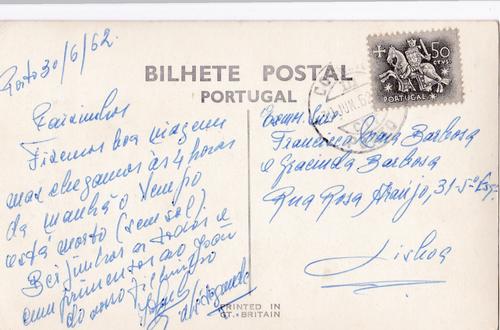 Porto 30/6/62.
BILHETE POSTAL
PORTUGAL
50
CTVS.
PORTUGAL
Paizinhos
Fizemos boa viagem
mas chegamos às 4 horas
da manhã o tempo
está morto (sem sol)
Beijinhos a todos e
cumprimentos ao
do
Francisca Barbosa
e Gracinda Barbosa
Rua Rosa Araújo, 31-5º Esq.
Lisboa
PRINTED IN
GT. BRITAIN